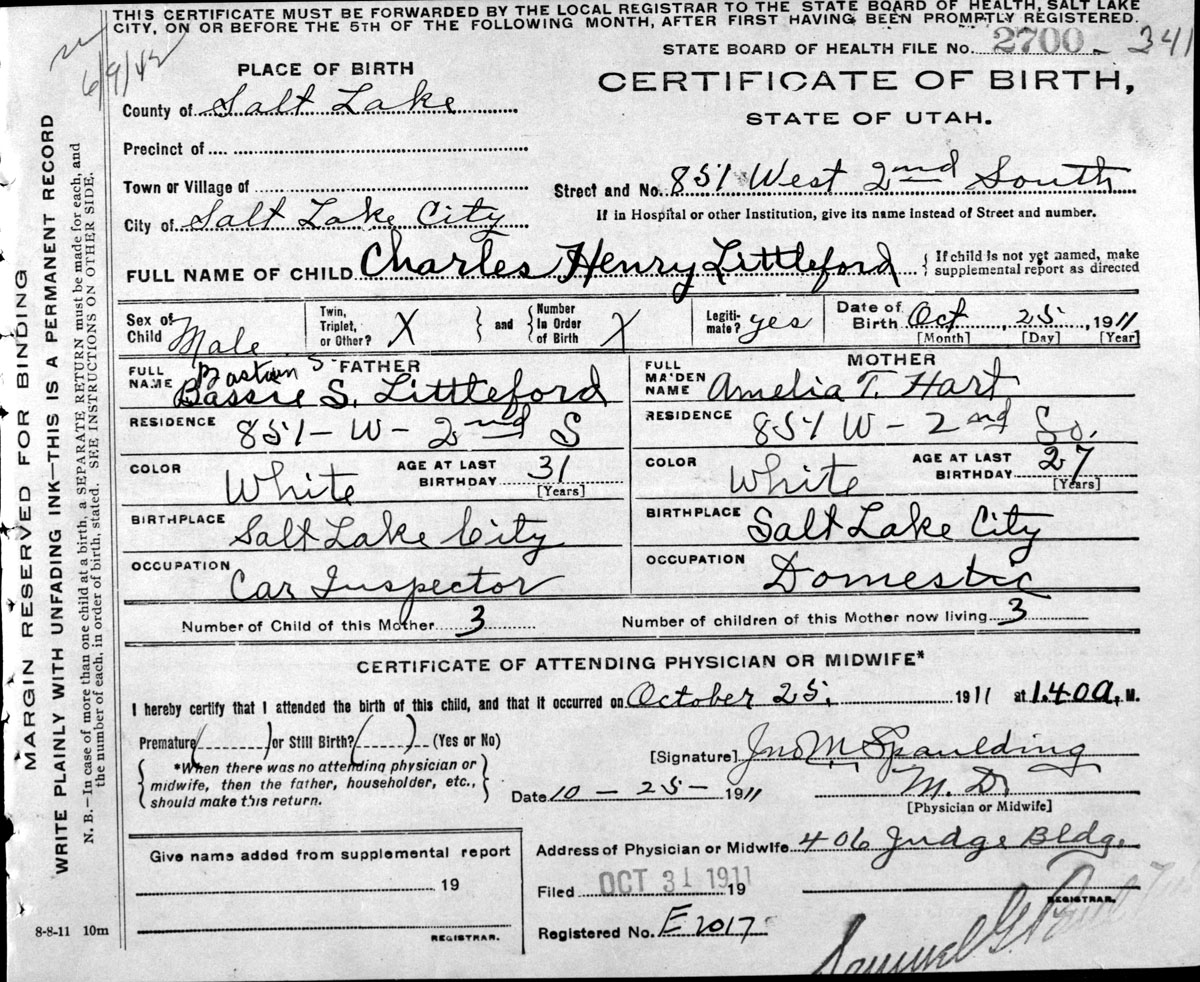 THIS CERTIFICATE MUST BE FORWARDED BY THE LOCAL REGISTRAR TO THE STATE BOARD OF HEALTH, SALT LAKE
CITY, ON OR BEFORE THE 5TH OF THE FOLLOWING MONTH, AFTER FIRST HAVING BEEN PROMPTLY REGISTERED.
STATE BOARD OF HEALTH FILE No. 2700 - 341
6/9/42
PLACE OF BIRTH
CERTIFICATE OF BIRTH,
County of Salt Lake
STATE OF UTAH.
Precinct of
Town or Village of
Street and No. 851 West 2nd South
City of Salt Lake City
If in Hospital or other Institution, give its name instead of Street and number.
FULL NAME OF CHILD Charles Henry Littleford { If child is not yet named, make
supplemental report as directed
Sex of Child Male
Twin, Triplet, or Other? X } and { Number In Order of Birth X
Legitimate? yes
Date of Birth Oct, 25, 1911
[Month] [Day] [Year]
FATHER
FULL NAME Bassie S. Littleford
RESIDENCE 851-W-2nd S
COLOR White AGE AT LAST BIRTHDAY 31 [Years]
BIRTHPLACE Salt Lake City
OCCUPATION Car Inspector
MOTHER
FULL MAIDEN NAME Amelia T. Hart
RESIDENCE 851 W-2nd So.
COLOR White AGE AT LAST BIRTHDAY 27 [Years]
BIRTHPLACE Salt Lake City
OCCUPATION Domestic
Number of Child of this Mother 3 Number of children of this Mother now living 3
CERTIFICATE OF ATTENDING PHYSICIAN OR MIDWIFE*
I hereby certify that I attended the birth of this child, and that it occurred on October 25, 1911 at 1.40 a. M.
Premature( ) or Still Birth?( ) (Yes or No)
*When there was no attending physician or
midwife, then the father, householder, etc.,
should make this return.
[Signature] Jno M Spaulding
M. D.
[Physician or Midwife]
Date 10-25-1911
Address of Physician or Midwife 406 Judge Bldg.
Give name added from supplemental report
19
REGISTRAR.
Filed OCT 31 1911 19
REGISTRAR.
Registered No. E2017
Samuel G.
8-8-11 10m
MARGIN RESERVED FOR BINDING
WRITE PLAINLY WITH UNFADING INK—THIS IS A PERMANENT RECORD
N. B.—In case of more than one child at a birth, a SEPARATE RETURN must be made for each, and
the number of each, in order of birth, stated. SEE INSTRUCTIONS ON OTHER SIDE.